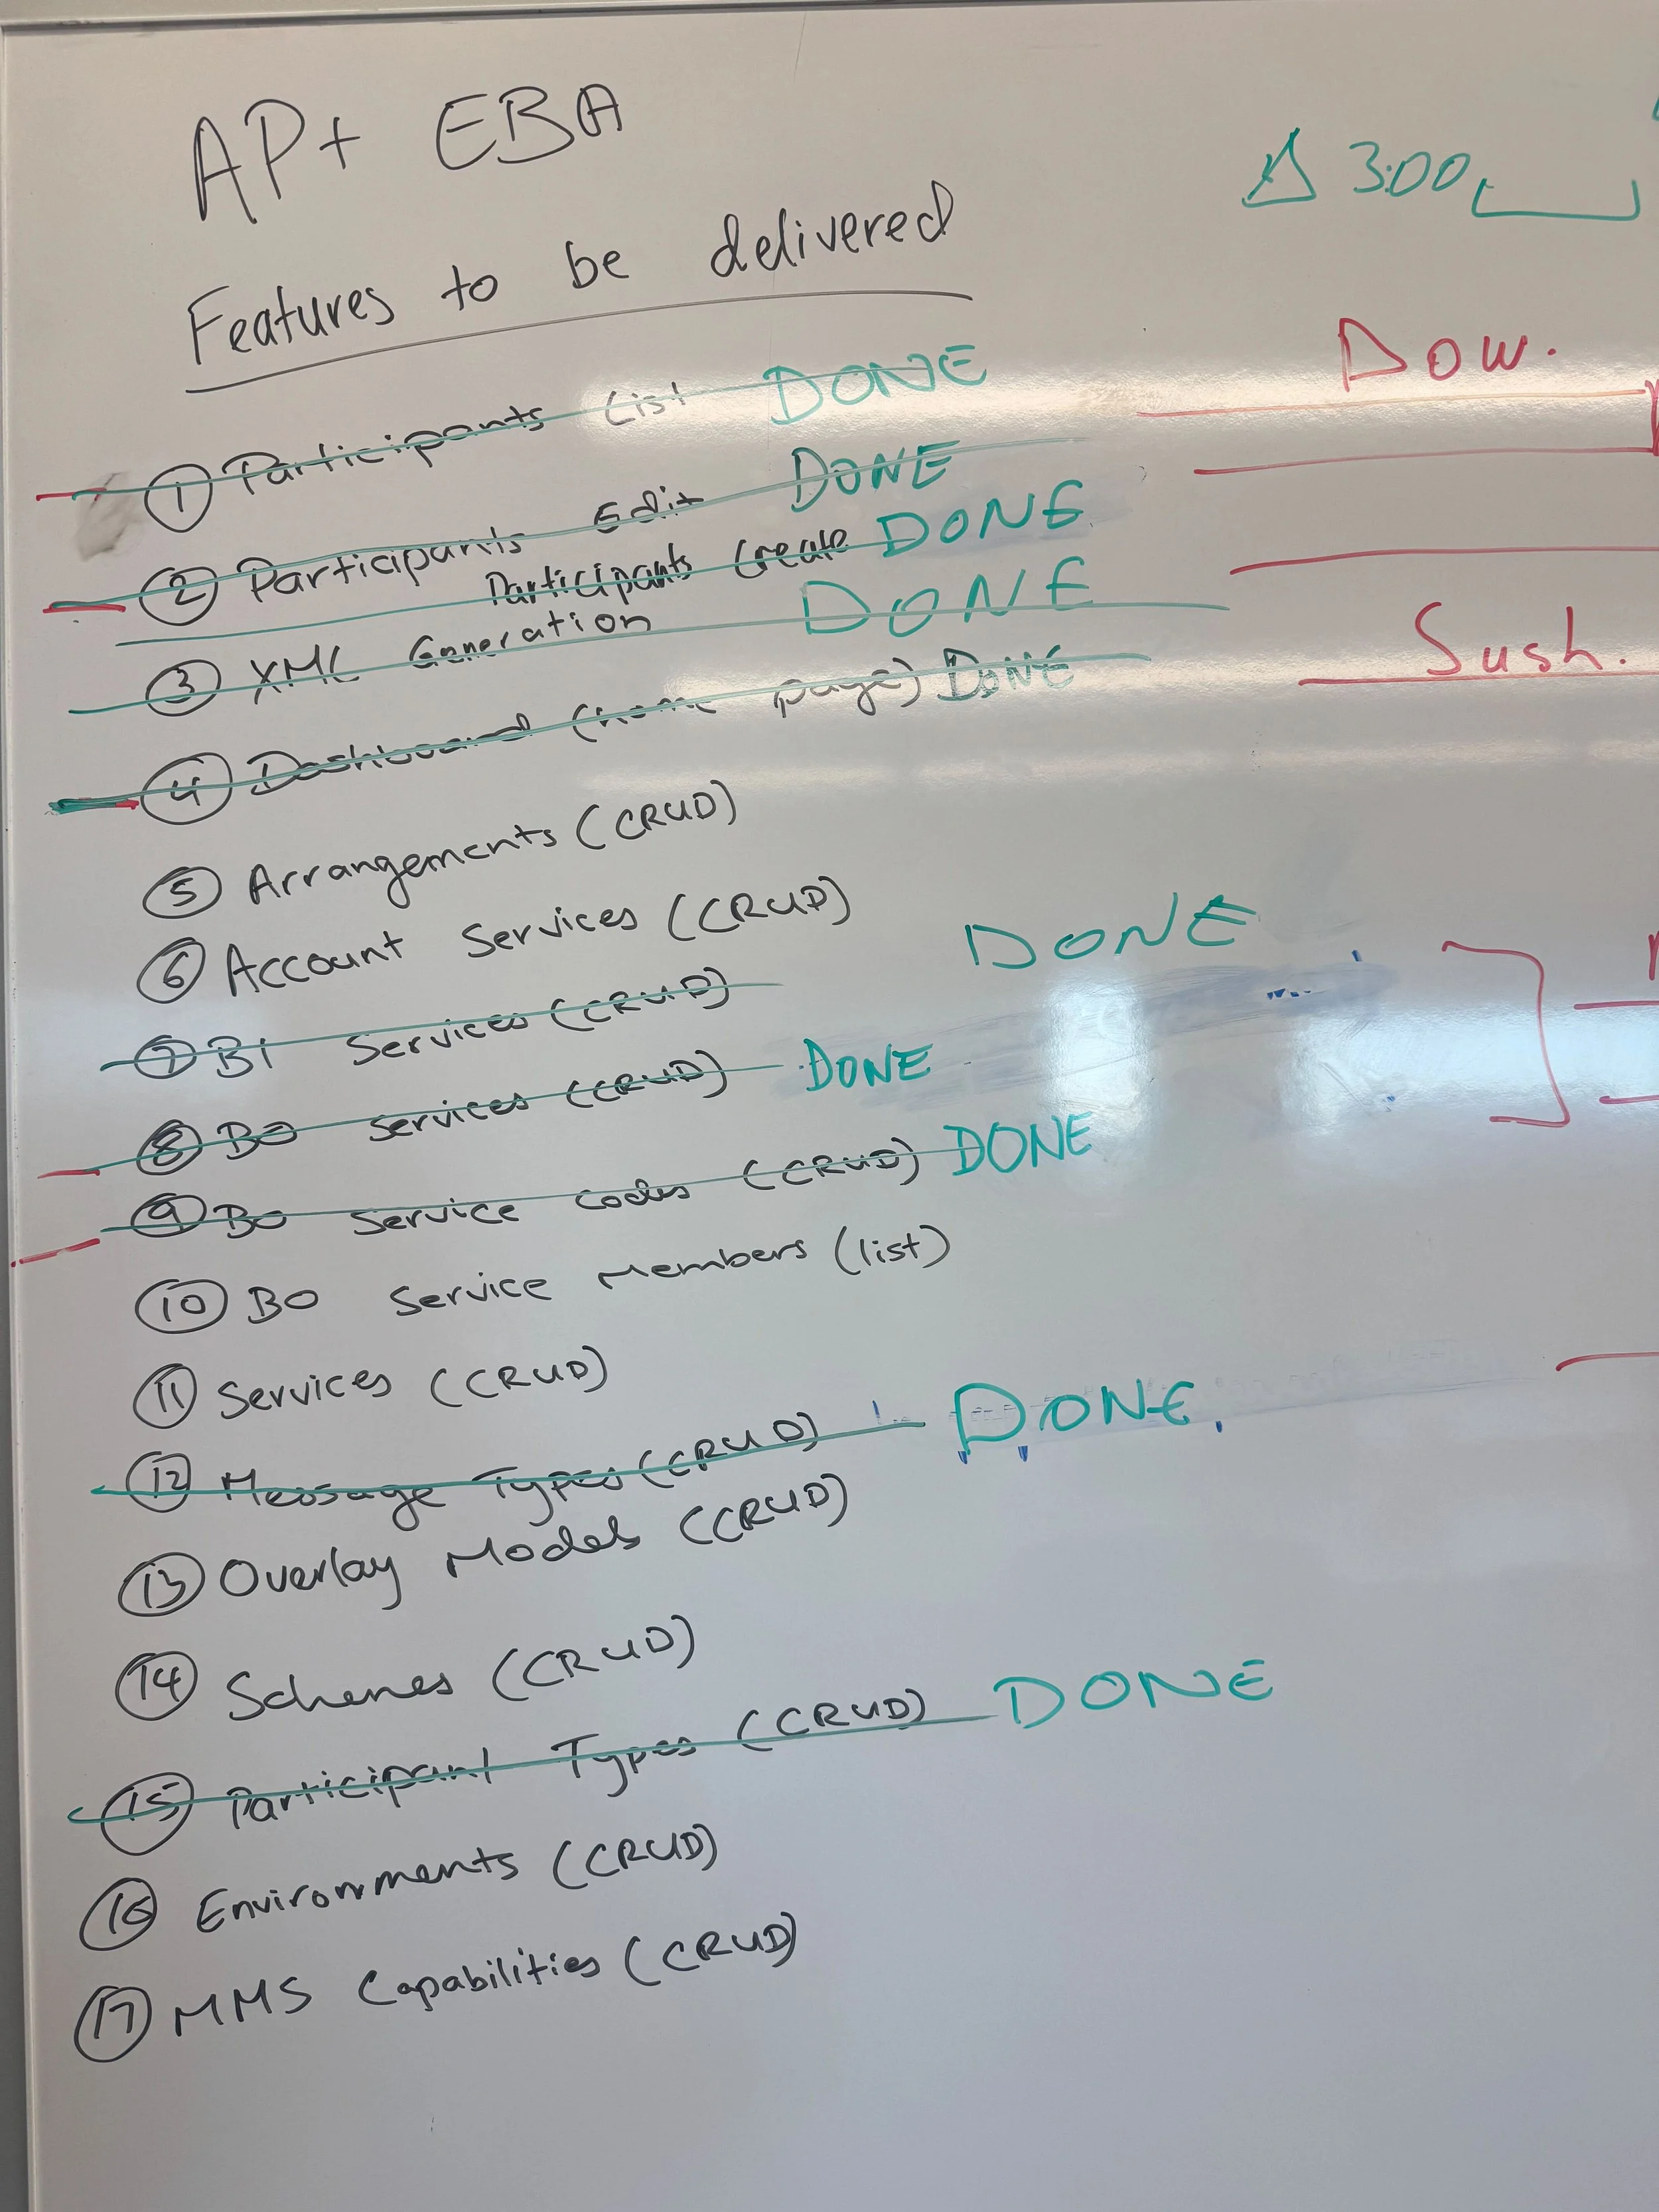 AP+ EBA
Δ 3:00
Features to be delivered
Dow.
① Participants List DONE
② Participants Edit DONE
Participants Create DONE
③ XML Generation DONE
Sush.
④ Dashboard (home page) DONE
⑤ Arrangements (CRUD)
⑥ Account Services (CRUD)
⑦ BI Services (CRUD) DONE
⑧ BO Services (CRUD) DONE
⑨ BO Service Codes (CRUD) DONE
⑩ BO Service Members (list)
⑪ Services (CRUD)
⑫ Message Types (CRUD) DONE
⑬ Overlay Models (CRUD)
⑭ Schemes (CRUD)
⑮ Participant Types (CRUD) DONE
⑯ Environments (CRUD)
⑰ MMS Capabilities (CRUD)